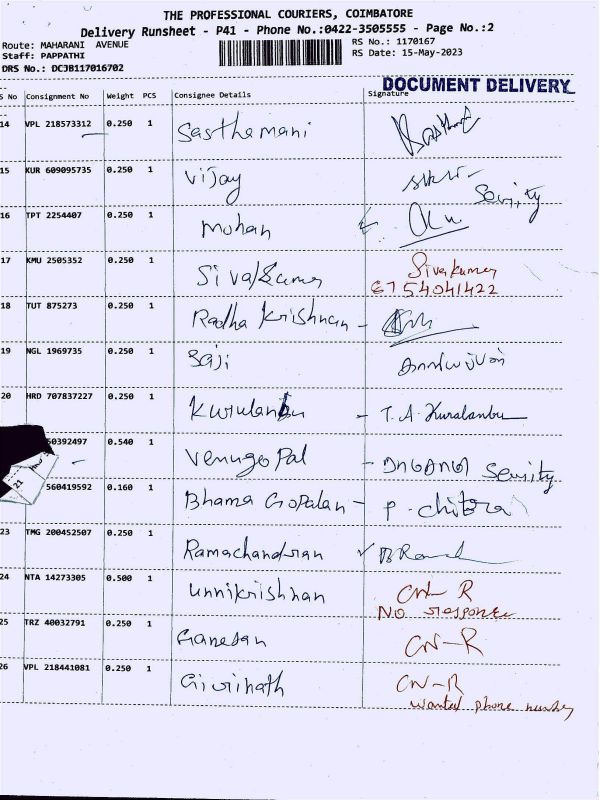 THE PROFESSIONAL COURIERS, COIMBATORE
Delivery Runsheet - P41 - Phone No.:0422-3505555 - Page No.:2
Route: MAHARANI AVENUE RS No.: 1170167
Staff: PAPPATHI RS Date: 15-May-2023
DRS No.: DCJB117016702
DOCUMENT DELIVERY
S No Consignment No Weight PCS Consignee Details Signature
14 VPL 218573312 0.250 1 Sasthamani
15 KUR 609095735 0.250 1 Vijay
Security
16 TPT 2254407 0.250 1 Mohan
17 KMU 2505352 0.250 1 Sivakumar Sivakumar
6754041422
18 TUT 875273 0.250 1 Radha Krishnan -
19 NGL 1969735 0.250 1 Saji
20 HRD 707837227 0.250 1 Kurulanbu - T. A. Kuralanbu
50392497 0.540 1 Venugopal - Security
21
560419592 0.160 1 Bhama Gopalan - P. chitra
23 TMG 200452507 0.250 1 Ramachandran
24 NTA 14273305 0.500 1 Unnikrishnan CN-R
No response
25 TRZ 40032791 0.250 1 Ganesan CN-R
26 VPL 218441081 0.250 1 Girinath CN-R
wanted phone number